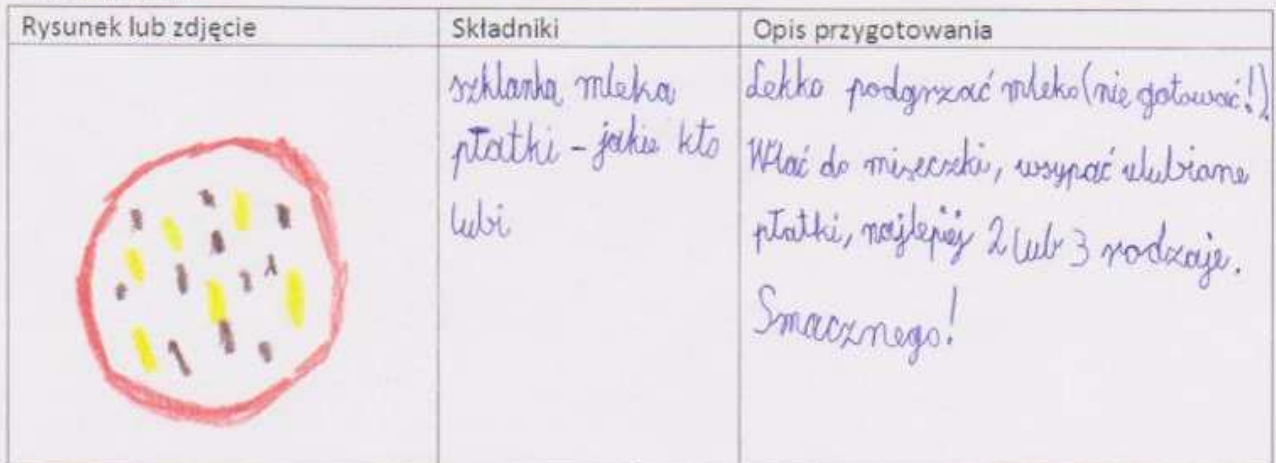 Rysunek lub zdjęcie
Składniki
Opis przygotowania
szklanka mleka
płatki - jakie kto
lubi
Lekko podgrzać mleko (nie gotować!).
Wlać do miseczki, wsypać ulubione
płatki, najlepiej 2 lub 3 rodzaje.
Smacznego!